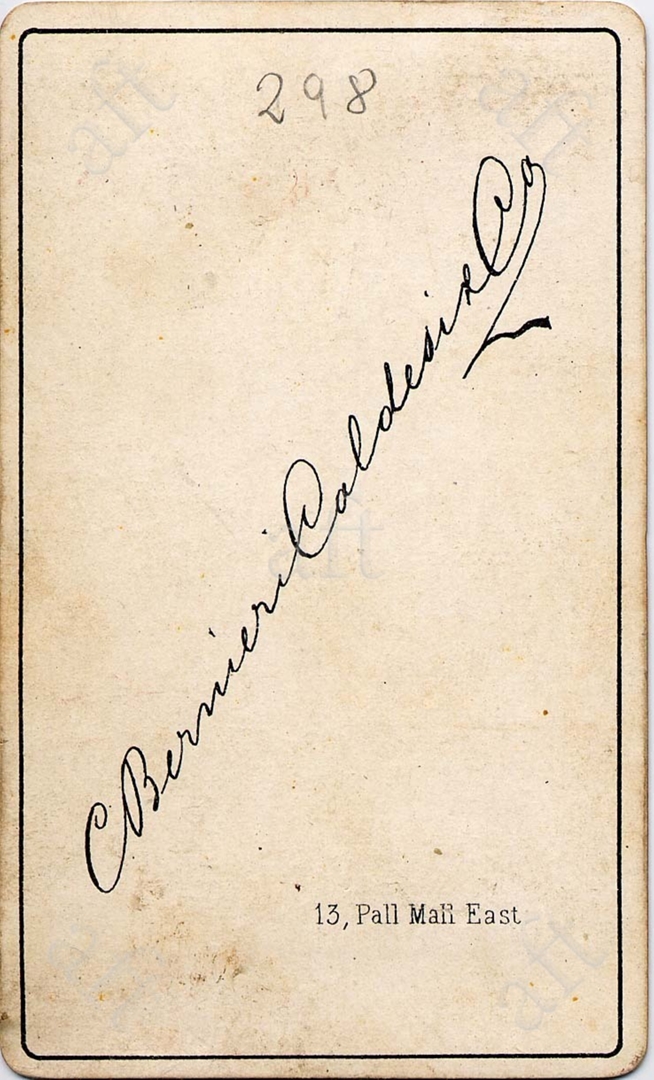 298
C Bernieri Caldesi & Co
13, Pall Mall East
aft
aft
aft
aft
aft